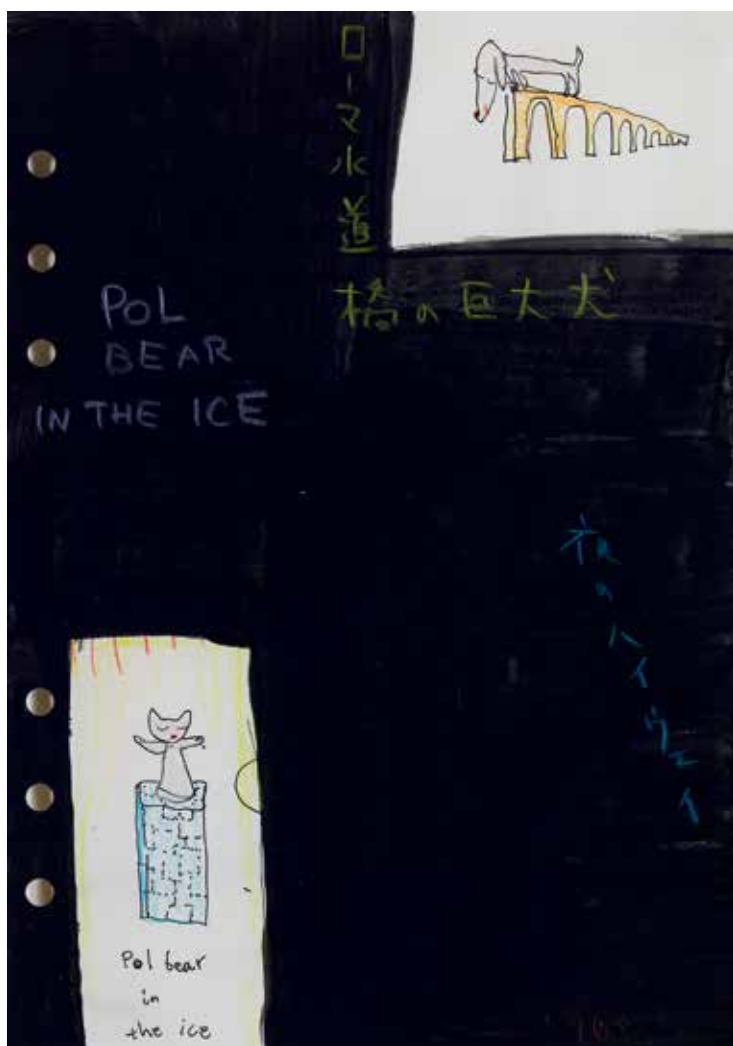 ローマ水道
橋の巨大犬
POL
BEAR
IN THE ICE
夜のハイウェイ
Pol bear
in
the ice